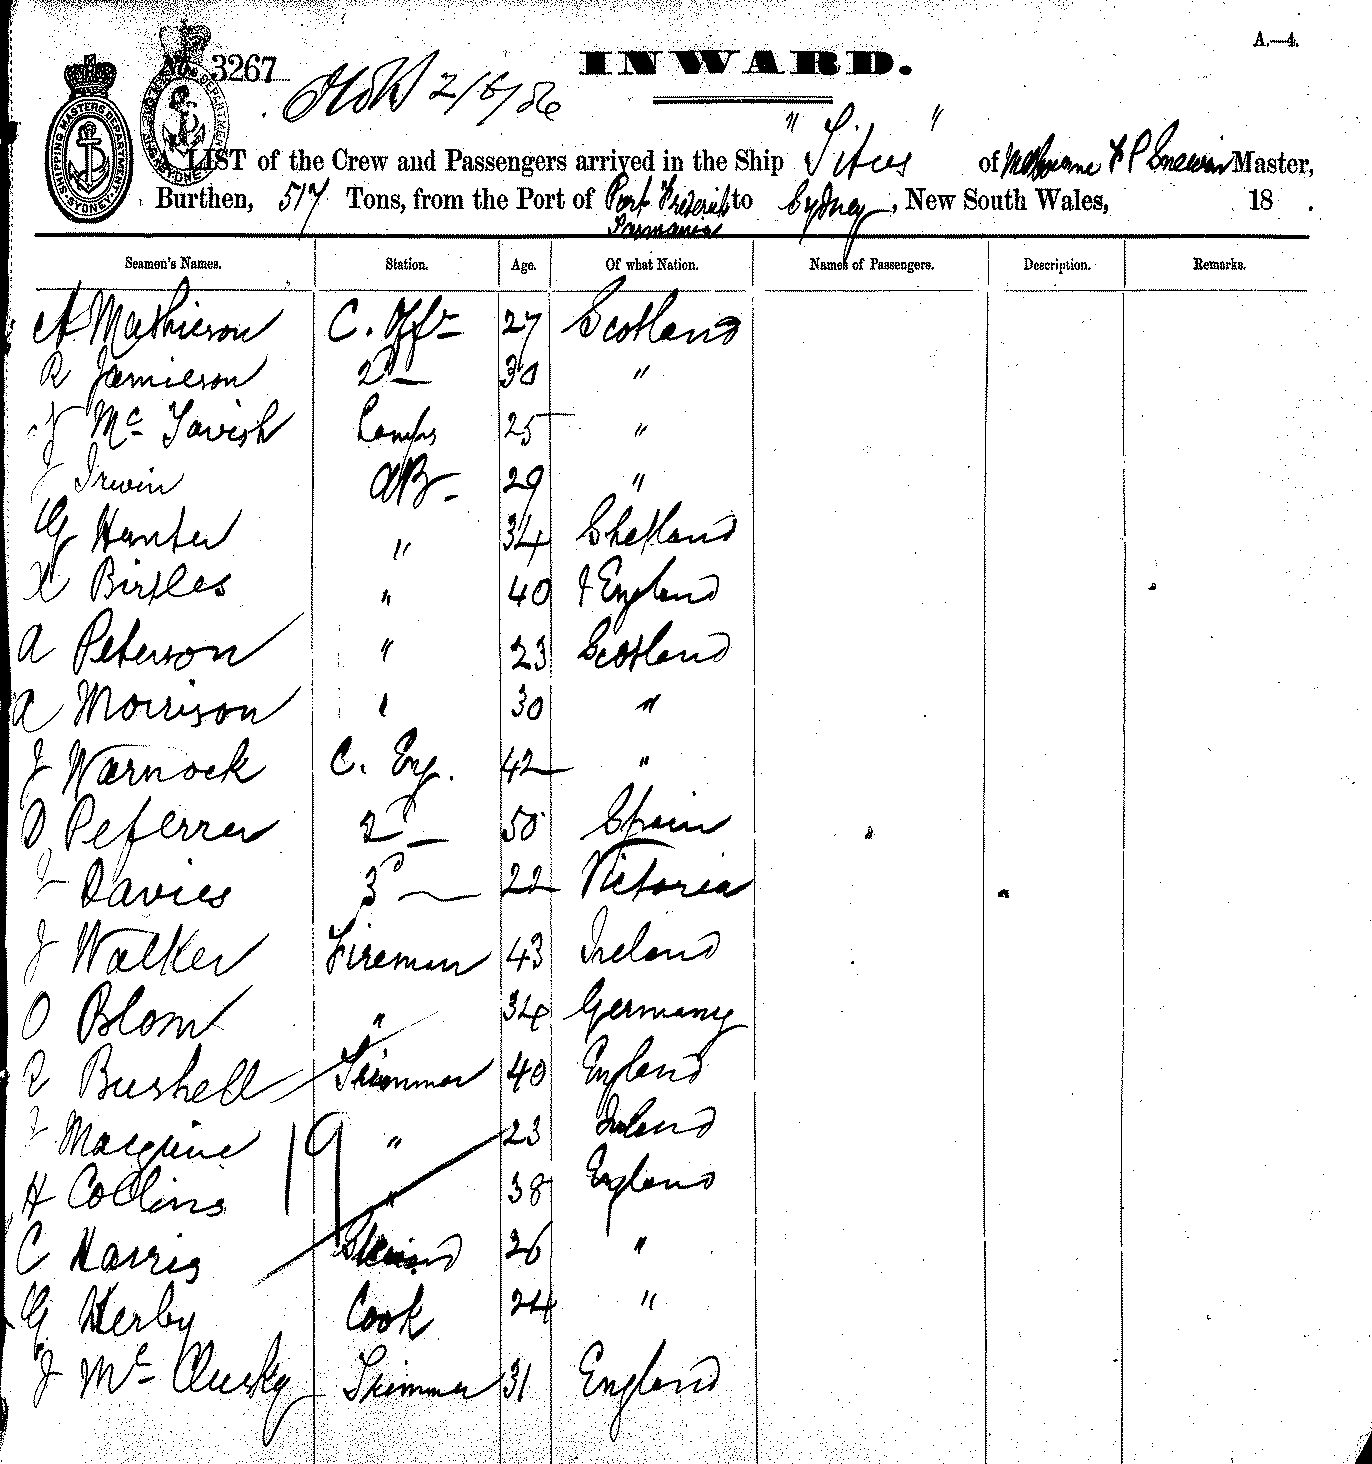 A.—4.
No. 3267
INWARD.
2/6/86
SHIPPING MASTERS DEPARTMENT SYDNEY
A LIST of the Crew and Passengers arrived in the Ship "Titus" of Melbourne Master,
Burthen, 517 Tons, from the Port of Port Frederick Tasmania to Sydney, New South Wales, 18 .
Seamen's Names. Station. Age. Of what Nation. Names of Passengers. Description. Remarks.
A Mathieson C. Offr 27 Scotland
R Jamieson 2d — 30 "
J Mc Tavish Lamps 25 "
J Irwin AB - 29 "
G Hunter " 34 Shetland
Birtles " 40 England
A Peterson " 23 Scotland
A Morrison " 30 "
J Warnock C. Eng. 42 "
D Peferrer 2d — 50 Spain
J Davies 3d — 22 Victoria
J Walker Fireman 43 Ireland
O Blom " 34 Germany
R Bushell Trimmer 40 England
J Macguine " 23 Ireland
H Collins " 38 England
19
C Harris Steward 26 "
G Kerby Cook 24 "
J Mc Clusky Trimmer 31 England